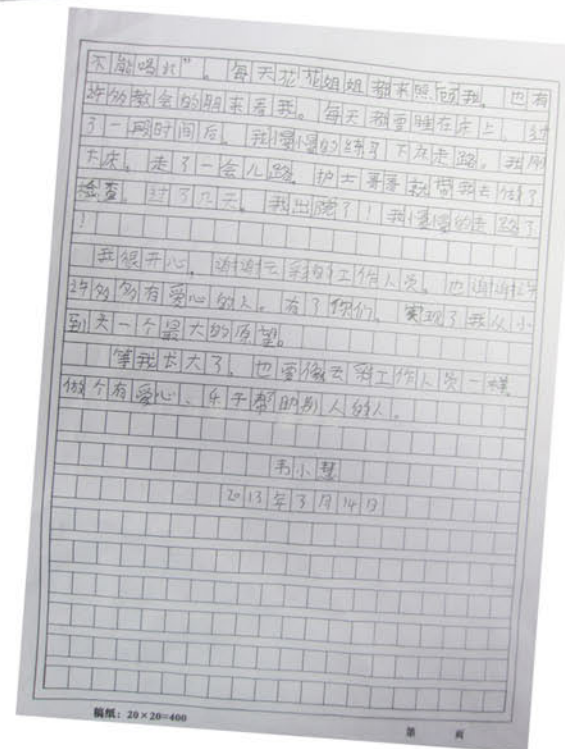 不能喝水”。每天花花姐姐都来照顾我。也有
许多教会的朋来看我。每天都要睡在床上，过
了一段时间后。我慢慢的练习下床走路。我刚
下床。走了一会儿路。护士哥哥就带我去做了
检查。过了几天。我出院了！我慢慢的走路了
！
我很开心。谢谢云彩的工作人员。也谢谢许
许多多有爱心的人。有了你们。实现了我从小
到大一个最大的原望。
等我长大了，也要像云彩工作人员一样。
做个有爱心、乐于帮助别人的人。
韦小慧
2013年3月14日
稿纸：20×20=400
第 页